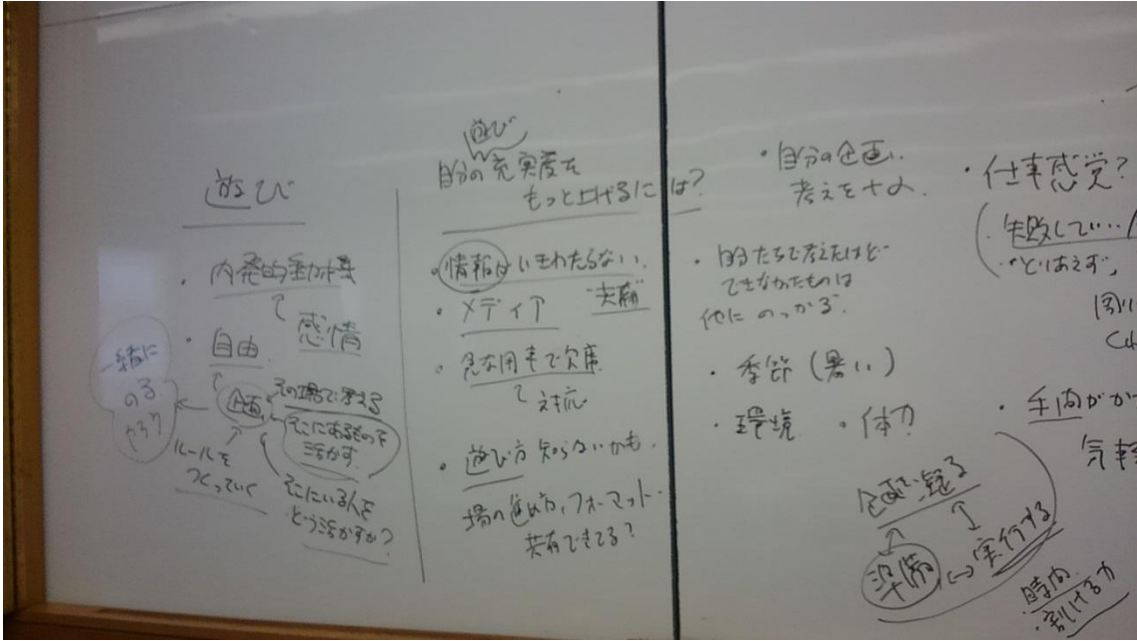 遊び
・内発的動機
感情
・自由
一緒に
のる
やる?
企画
その場で考える
そこにあるものを
活かす
ルールを
つくっていく
そこにいる人を
どう活かすか?
遊び
自分の充実度を
もっと上げるには?
・情報はいきわたらない
・メディア
・急な用事で欠席
対応
・遊び方知らないかも
場の進め方、フォーマット
共有できてる?
・自分の企画、
考えを+α
できなかったものは
他にのっかる
・季節(暑い)
・環境
・体力
企画を練る
準備↔実行する
時間
・仕事感覚?
失敗して…
"とりあえず"